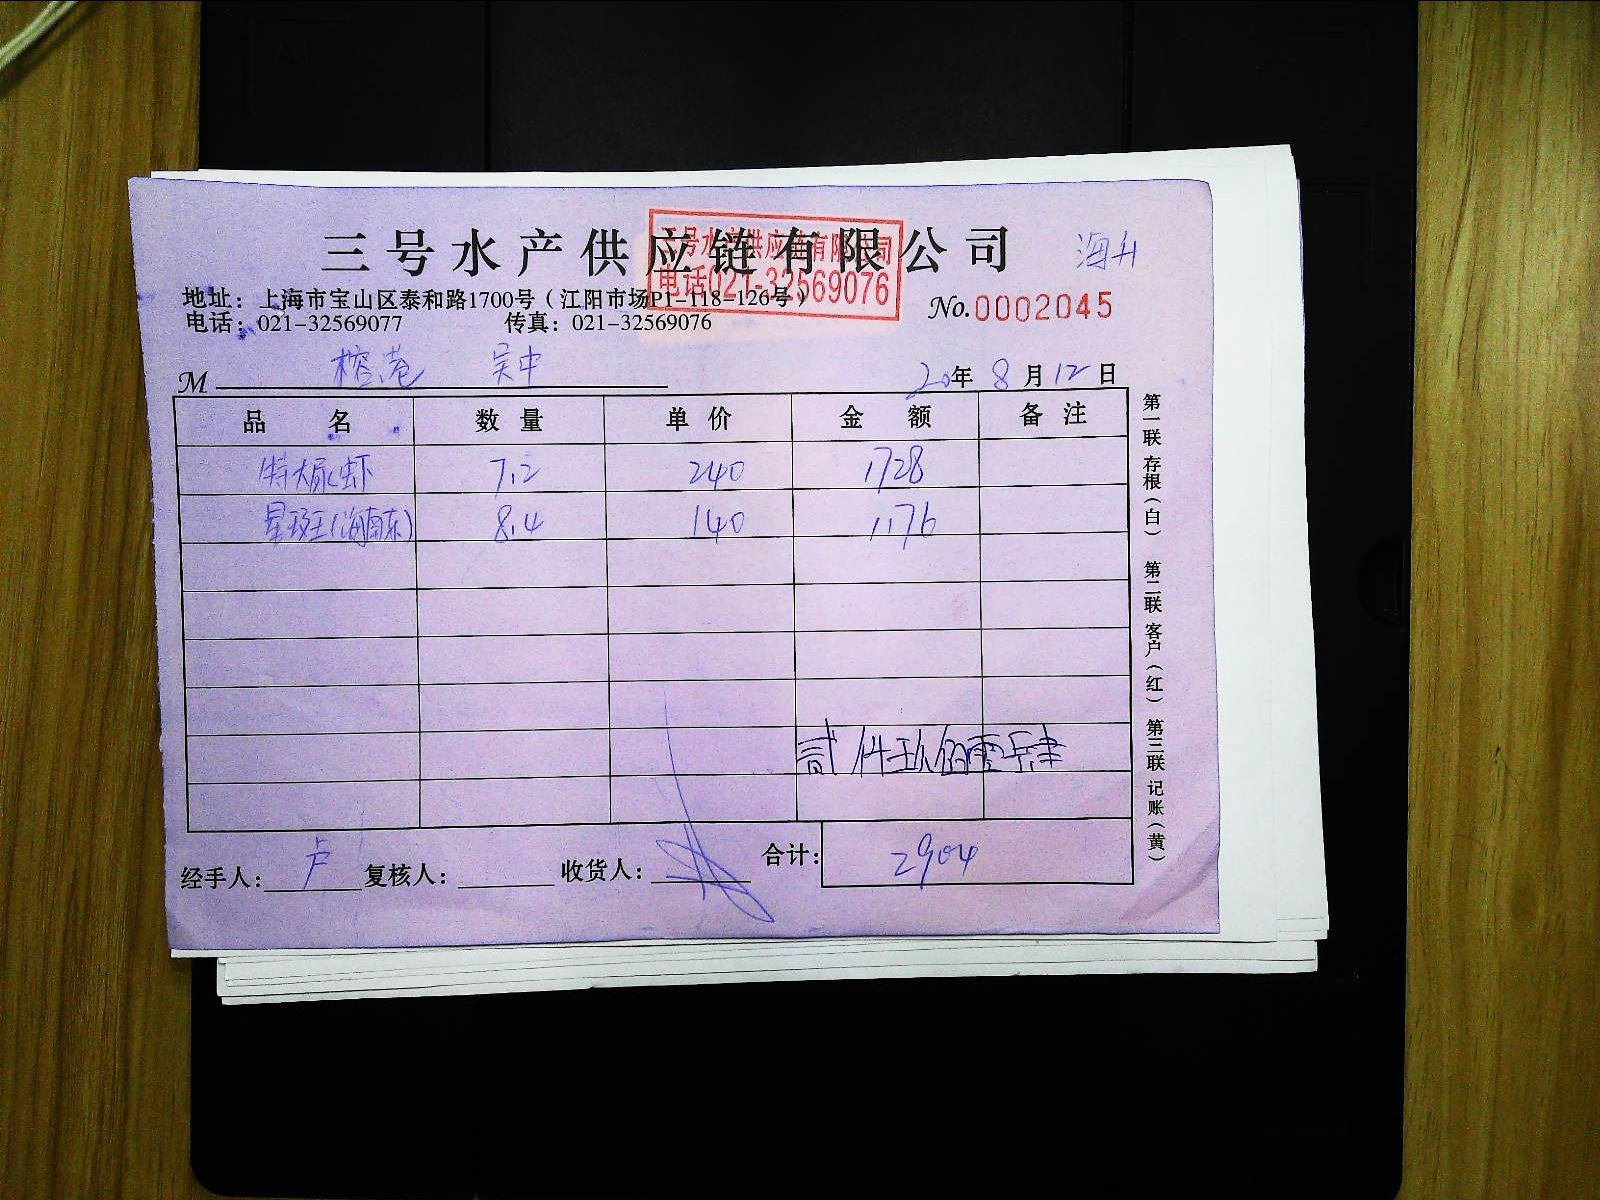 三号水产供应链有限公司
海升
三号水产供应链有限公司
电话021-32569076
地址：上海市宝山区泰和路1700号（江阳市场P1-118-126号）
电话：021-32569077 传真：021-32569076
No.0002045
M 榕港 吴中
20年 8月12日
品名 数量 单价 金额 备注
特大 虾 7.2 240 1728
星斑王(海南东) 8.4 140 1176
贰仟玖佰零肆
经手人：卢 复核人： 收货人： 合计：2904
第一联 存根（白） 第二联 客户（红） 第三联 记账（黄）